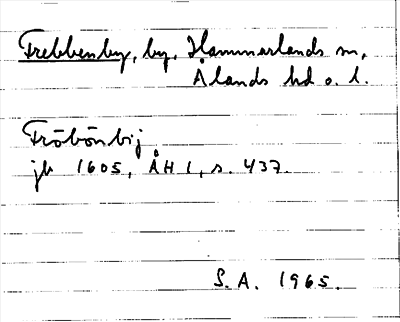 Frebbenby, by, Hammarlands sn,
Ålands hd o. l.
Fröbönbij
jb 1605, ÅH 1, s. 437.
S.A. 1965.